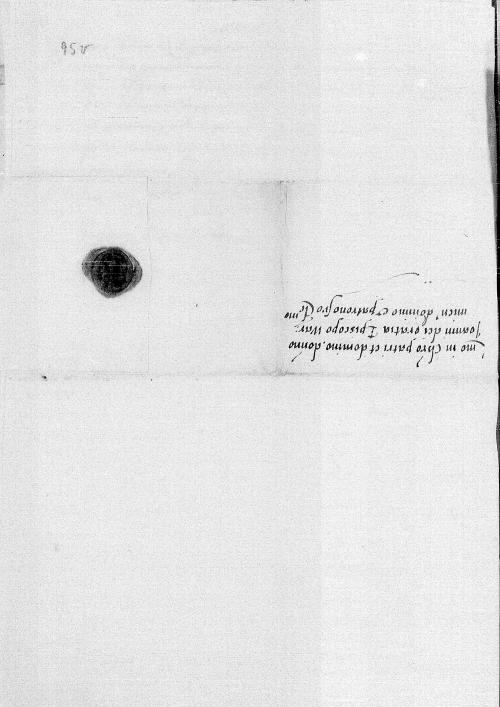 95v
mo in Chro patri et domino, domino
Joanni dei gratia Episcopo War,
mien, domino et patrono suo Cle mo